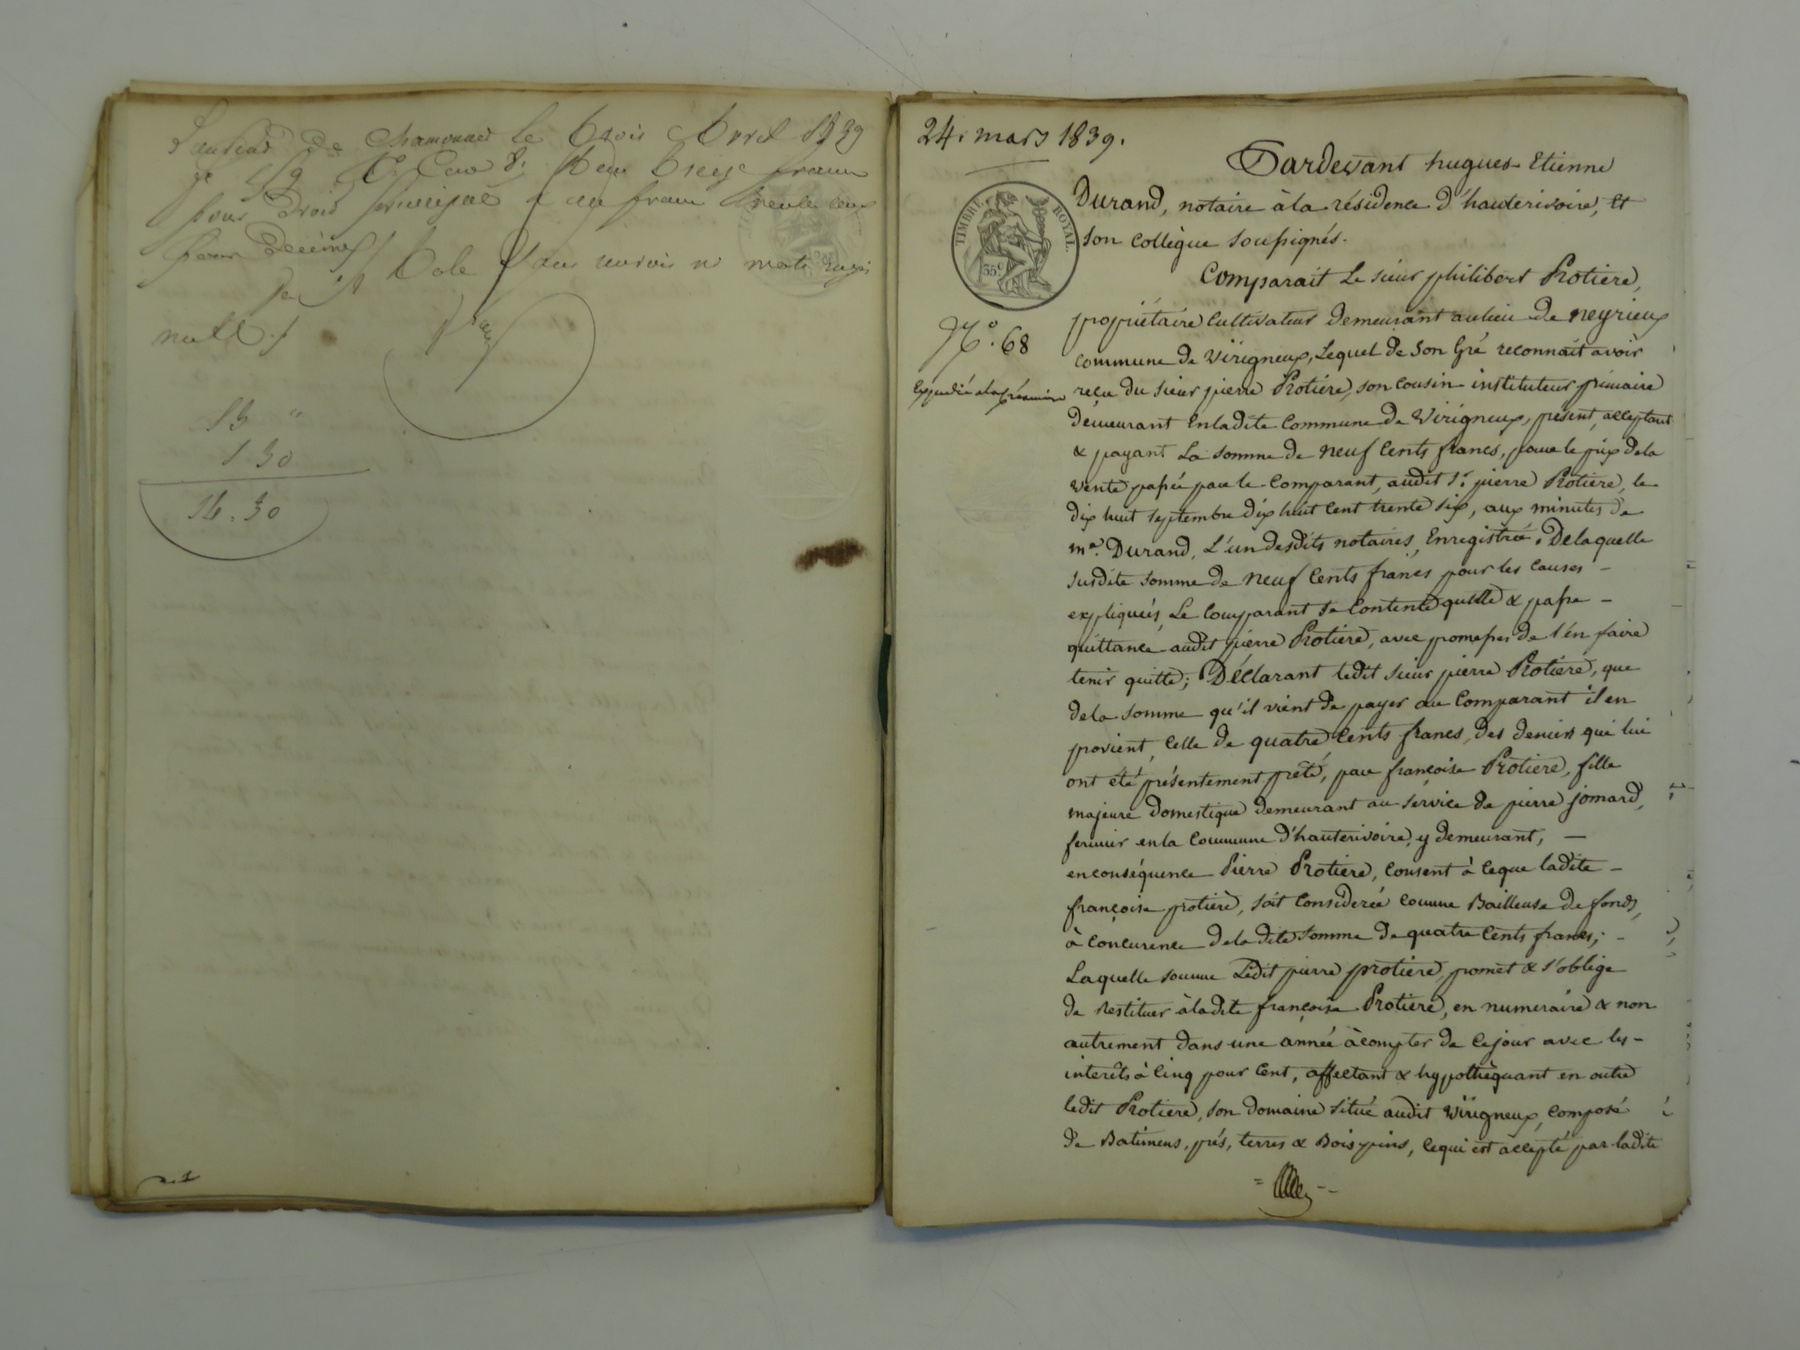 de le trois avril 1839
treize francs
pour droit principal & un franc trente
pour décime
null
13 "
1 30
14.30
24. mars 1839.
Pardevant hugues-Etienne
Durand, notaire à la résidence d'hauterivoire, et
son collègue soussignés.
TIMBRE ROYAL
35 c
Comparait Le sieur philibert Protiere,
propriétaire cultivateur demeurant au lieu de neyrieux
N.° 68
commune de virigneux, Lequel de son Gré reconnait avoir
Expédié à la
recu du sieur pierre Protiere, son cousin instituteur primaire
demeurant En ladite Commune de virigneux, présent, acceptant
& payant La somme de neuf Cents francs, pour le prix de la
vente passée par le Comparant, audit Sr. pierre Protiere, le
dix huit septembre dix huit cent trente six, aux minutes de
me. Durand, L'un desdits notaires, Enregistrée. De laquelle
susdite somme de neuf Cents francs pour les causes -
expliquées, Le Comparant se Contente quitte & passe -
quittance audit pierre Protiere, avec promesses de l'en faire
tenir quitte; Déclarant ledit sieur pierre Protiere, que
de la somme qu'il vient de payer au Comparant il en
provient, Celle de quatre Cents francs, des deniers qui lui
ont été présentement prêté, par françoise Protiere, fille
majeure domestique demeurant au service de pierre jomard,
fermier en la Commune d'hauterivoire, y demeurant, —
en conséquence Pierre Protiere, Consent à ceque ladite -
françoise protiere, soit Considerée comme Bailleuse de fonds,
à Concurence de la dite somme de quatre Cents francs; -
Laquelle somme Ledit pierre protiere, promet & s'oblige
de Restituer à la dite françoise Protiere, en numeraire & non
autrement dans une année à compter de ce jour avec les -
interêts à Cinq pour Cent, affectant & hypothéquant en outre
ledit Protiere, son domaine situé audit virigneux, composé
de Batimens, prés, terres & Bois pins, cequi est accepté par ladite